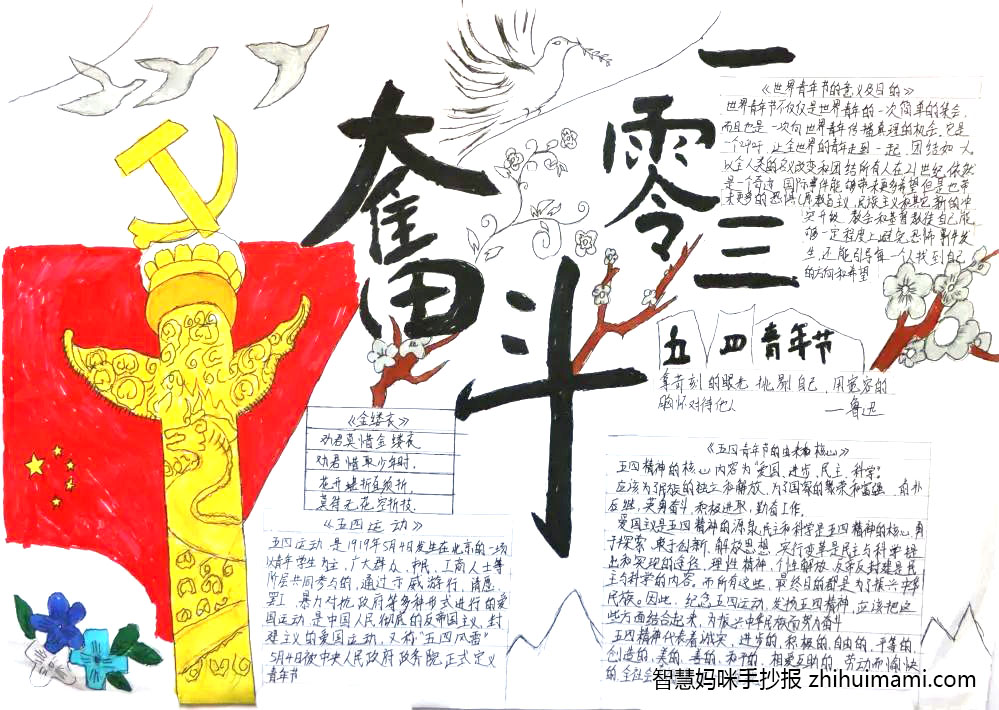 奋斗
一
零
三
《世界青年节的意义及目的》
世界青年节不仅仅是世界青年的一次简单的集会,
而且也是一次向世界青年传播真理的机会,它是
一个呼吁,让全世界的青年走到一起,团结如人
以全人类的名义改变和团结所有人在21世纪,依然
是一个奇迹,国际事件能够带来更多希望但是也带
来更多的恐惧
民族主义和其它新的冲
突开放
够一定程度上避免恐怖事件发
生,还能引导每一个人找到自己
的方向和希望
五四青年节
苛刻的眼光挑剔自己,用宽容的
胸怀对待他人
—鲁迅
《金缕衣》
劝君莫惜金缕衣
劝君惜取少年时.
花开堪折直须折
莫待无花空折枝
《五四运动》
五四运动是1919年5月4日发生在北京的一场
以青年学生为主,广大群众、市民、工商人士等
阶层共同参与的,通过示威游行、请愿、
罢工、暴力对抗政府等多种形式进行的爱
国运动,是中国人民彻底的反帝国主义、封
建主义的爱国运动,又称“五四风雷”
5月4日被中央人民政府政务院正式定义
青年节
《五四青年节的由来和核心》
五四精神的核心内容为“爱国、进步、民主、科学”
应该为了民族的独立和解放,为了国家的繁荣和富强
英勇奋斗、积极进取,勤奋工作。
爱国主义是五四精神的源泉,民主和科学是五四精神的核心,勇
于探索、敢于创新、解放思想、实行变革是民主与科学提
出和实现的途径,理性精神、个性解放、反帝反封建是民
主与科学的内容。而所有这些,最终目的都是为了振兴中华
民族。因此,纪念五四运动,发扬五四精神,应该把这
些方面结合起来,为振兴中华民族而努力奋斗
五四精神代表着诚实、进步的、积极的、自由的、平等的、
创造的、美的、善的、和平的、相爱互助的、劳动而愉快
的,全社会
智慧妈咪手抄报 zhihuimami.com